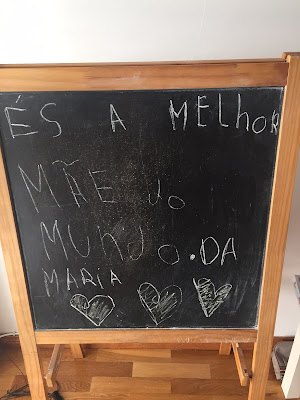 ÉS A MELhOR
MÃE do
MUNdO.DA
MARIA